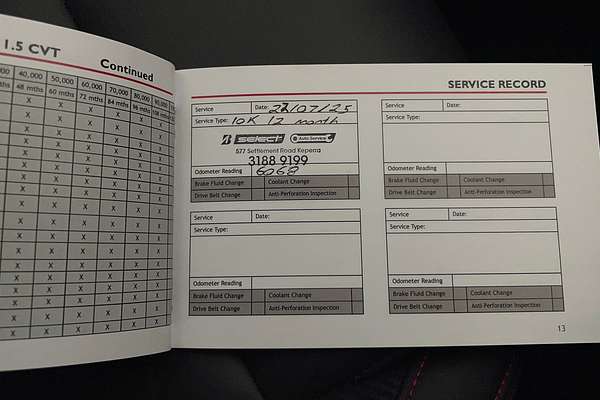 1.5 CVT
Continued
40,000 50,000 60,000 70,000 80,000 90,000
48 mths 60 mths 72 mths 84 mths 96 mths
X X X X X X
SERVICE RECORD
Service Date: 22/07/25
Service Type: 10K 12 month
Select Auto Service
577 Settlement Road Keperra
3188 9199
Odometer Reading 6068
Brake Fluid Change Coolant Change
Drive Belt Change Anti-Perforation Inspection
Service Date:
Service Type:
Odometer Reading
Brake Fluid Change Coolant Change
Drive Belt Change Anti-Perforation Inspection
Service Date:
Service Type:
Odometer Reading
Brake Fluid Change Coolant Change
Drive Belt Change Anti-Perforation Inspection
Service Date:
Service Type:
Odometer Reading
Brake Fluid Change Coolant Change
Drive Belt Change Anti-Perforation Inspection
13